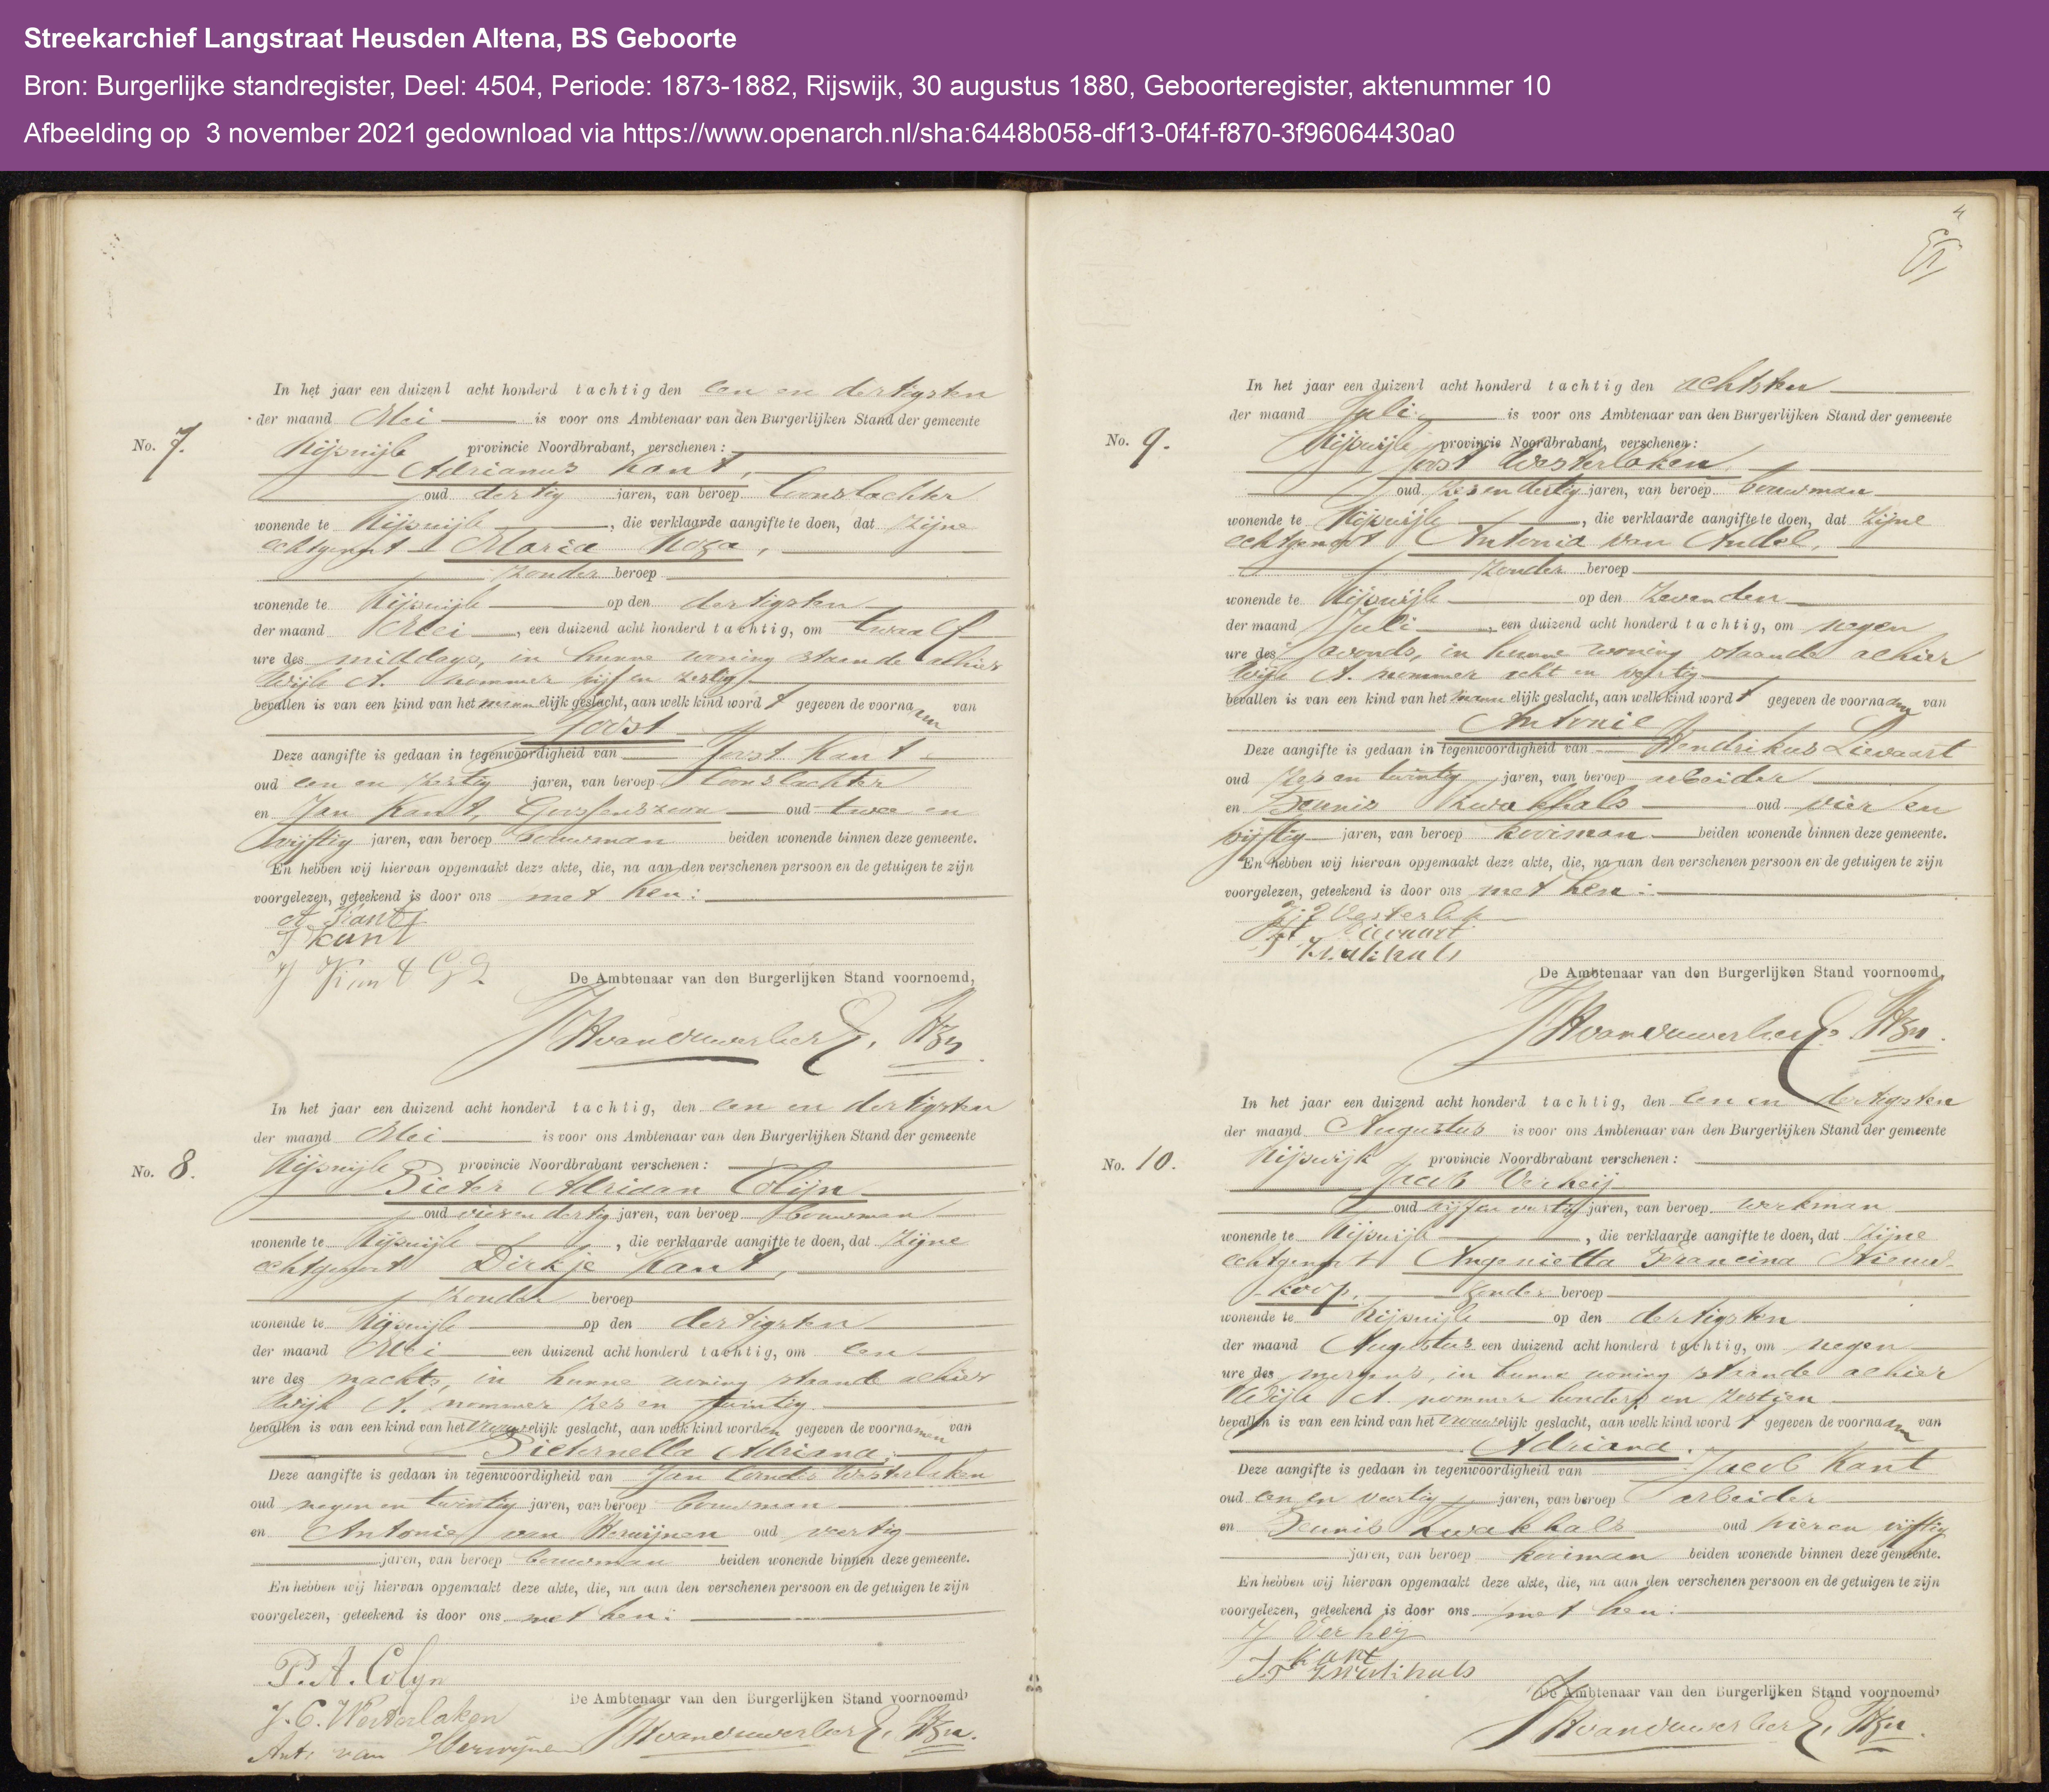 Streekarchief Langstraat Heusden Altena, BS Geboorte
Bron: Burgerlijke standregister, Deel: 4504, Periode: 1873-1882, Rijswijk, 30 augustus 1880, Geboorteregister, aktenummer 10
Afbeelding op 3 november 2021 gedownload via https://www.openarch.nl/sha:6448b058-df13-0f4f-f870-3f96064430a0
No. 7.
In het jaar een duizend acht honderd tachtig den een en dertigsten
der maand Mei is voor ons Ambtenaar van den Burgerlijken Stand der gemeente
Rijswijk provincie Noordbrabant, verschenen:
Adrianus Kant,
oud dertig jaren, van beroep loonslachter
wonende te Rijswijk, die verklaarde aangifte te doen, dat zijne
echtgenoot Maria
zonder beroep
wonende te Rijswijk op den dertigsten
der maand Mei, een duizend acht honderd tachtig, om twaalf
ure des middags, in hunne woning staande alhier
Wijk A. nommer vijf en zestig
bevallen is van een kind van het mannelijk geslacht, aan welk kind wordt gegeven de voornaam van
Joost
Deze aangifte is gedaan in tegenwoordigheid van Joost Kant
oud een en zestig jaren, van beroep loonslachter
en Jan Kant, Goossenszoon oud twee en
vijftig jaren, van beroep bouwman beiden wonende binnen deze gemeente.
En hebben wij hiervan opgemaakt deze akte, die, na aan den verschenen persoon en de getuigen te zijn
voorgelezen, geteekend is door ons met hen:
A. Kant
J Kant
J Kant G Z
De Ambtenaar van den Burgerlijken Stand voornoemd,
No. 8.
In het jaar een duizend acht honderd tachtig, den een en dertigsten
der maand Mei is voor ons Ambtenaar van den Burgerlijken Stand der gemeente
Rijswijk provincie Noordbrabant verschenen:
Pieter Adriaan Colijn
oud vier en dertig jaren, van beroep bouwman
wonende te Rijswijk, die verklaarde aangifte te doen, dat zijne
echtgenoot Dirkje Kant,
zonder beroep
wonende te Rijswijk op den dertigsten
der maand Mei een duizend acht honderd tachtig, om een
ure des nachts, in hunne woning staande alhier
Wijk A. nommer zes en twintig.
bevallen is van een kind van het vrouwelijk geslacht, aan welk kind worden gegeven de voornamen van
Pieternella Adriana,
Deze aangifte is gedaan in tegenwoordigheid van Jan Cornelis Westerlaken
oud negen en twintig jaren, van beroep bouwman
en Antonie van Herwijnen oud veertig
jaren, van beroep bouwman beiden wonende binnen deze gemeente.
En hebben wij hiervan opgemaakt deze akte, die, na aan den verschenen persoon en de getuigen te zijn
voorgelezen, geteekend is door ons met hen:
P. A. Colyn
J. C. Westerlaken
Ant: van Herwijnen
De Ambtenaar van den Burgerlijken Stand voornoemd,
4
No. 9.
In het jaar een duizend acht honderd tachtig den achtsten
der maand Juli is voor ons Ambtenaar van den Burgerlijken Stand der gemeente
Rijswijk provincie Noordbrabant, verschenen:
Joost Westerlaken
oud zes en dertig jaren, van beroep bouwman
wonende te Rijswijk, die verklaarde aangifte te doen, dat zijne
echtgenoot Antonia van Andel,
zonder beroep
wonende te Rijswijk op den zevenden
der maand Juli, een duizend acht honderd tachtig, om negen
ure des avonds, in hunne woning staande alhier
Wijk A. nommer acht en veertig
bevallen is van een kind van het mannelijk geslacht, aan welk kind wordt gegeven de voornaam van
Antonie
Deze aangifte is gedaan in tegenwoordigheid van Hendrikus Lievaart
oud zes en twintig jaren, van beroep arbeider
en Teunis Zwakhals oud vier en
vijftig jaren, van beroep kooiman beiden wonende binnen deze gemeente.
En hebben wij hiervan opgemaakt deze akte, die, na aan den verschenen persoon en de getuigen te zijn
voorgelezen, geteekend is door ons met hen:
Lievaart
De Ambtenaar van den Burgerlijken Stand voornoemd,
No. 10.
In het jaar een duizend acht honderd tachtig, den een en dertigsten
der maand Augustus is voor ons Ambtenaar van den Burgerlijken Stand der gemeente
Rijswijk provincie Noordbrabant verschenen:
Jacob Verheij
oud vijf en veertig jaren, van beroep werkman
wonende te Rijswijk, die verklaarde aangifte te doen, dat zijne
echtgenoot Angenietta Francina Nieuw-
koop, zonder beroep
wonende te Rijswijk op den dertigsten
der maand Augustus een duizend acht honderd tachtig, om negen
ure des morgens, in hunne woning staande alhier
Wijk A. nommer honderd en zestien
bevallen is van een kind van het vrouwelijk geslacht, aan welk kind wordt gegeven de voornaam van
Adriana.
Deze aangifte is gedaan in tegenwoordigheid van Jacob Kant
oud een en veertig jaren, van beroep arbeider
en Teunis Zwakhals oud vier en vijftig
jaren, van beroep kooiman beiden wonende binnen deze gemeente.
En hebben wij hiervan opgemaakt deze akte, die, na aan den verschenen persoon en de getuigen te zijn
voorgelezen, geteekend is door ons met hen:
J Verheij
Kant
De Ambtenaar van den Burgerlijken Stand voornoemd,